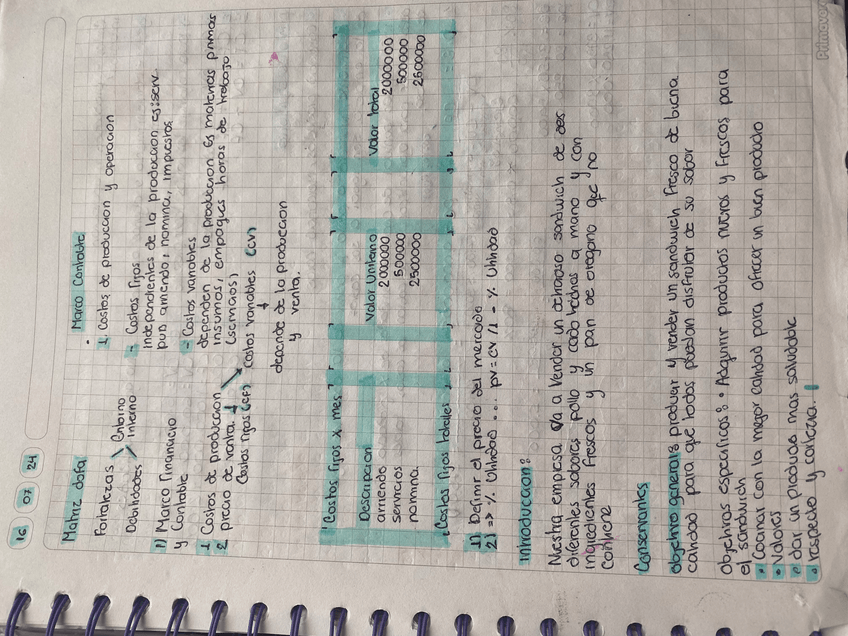 16 07 24
Matriz dofa
Fortalezas > Entorno
Debilidades Interno
1) Marco Financiero
y Contable
1 Costos de produccion
2 precio de venta.
Costos Fijos (CF)
costos variables (CV)
depende de la produccion
y venta.
• Marco Contable
1. Costos de produccion y operacion
- Costos Fijos
independientes de la produccion ej: serv.
pub arriendo, nomina, impuestos
- Costos variables
dependen de la produccion Ej materias primas
insumos, empaques horas de trabajo
Costos Fijos x mes
Descripcion Valor Unitario Valor total
arriendo 2000000 2000000
servicios 500000 500000
nomina. 2500000 2500000
Costos Fijos totales
1) Definir el precio del mercado
2) => % Utilidad ... pv = cv / 1 - % Utilidad
Introduccion:
Nuestra empresa va a Vender un delicioso sandwich de dos
diferentes sabores pollo y cerdo hechos a mano y con
ingredientes frescos y un pan de oregano que no
contiene
Conservantes
Objetivo general: producir y vender un sandwich fresco de buena
calidad para que todos puedan disfrutar de su sabor
objetivos especificos: • Adquirir productos nuevos y frescos para
el sandwich
• Cocinar con la mejor calidad para ofrecer un buen producto
• Valores
• dar un producto mas saludable
• respeto y confianza.
Primavera